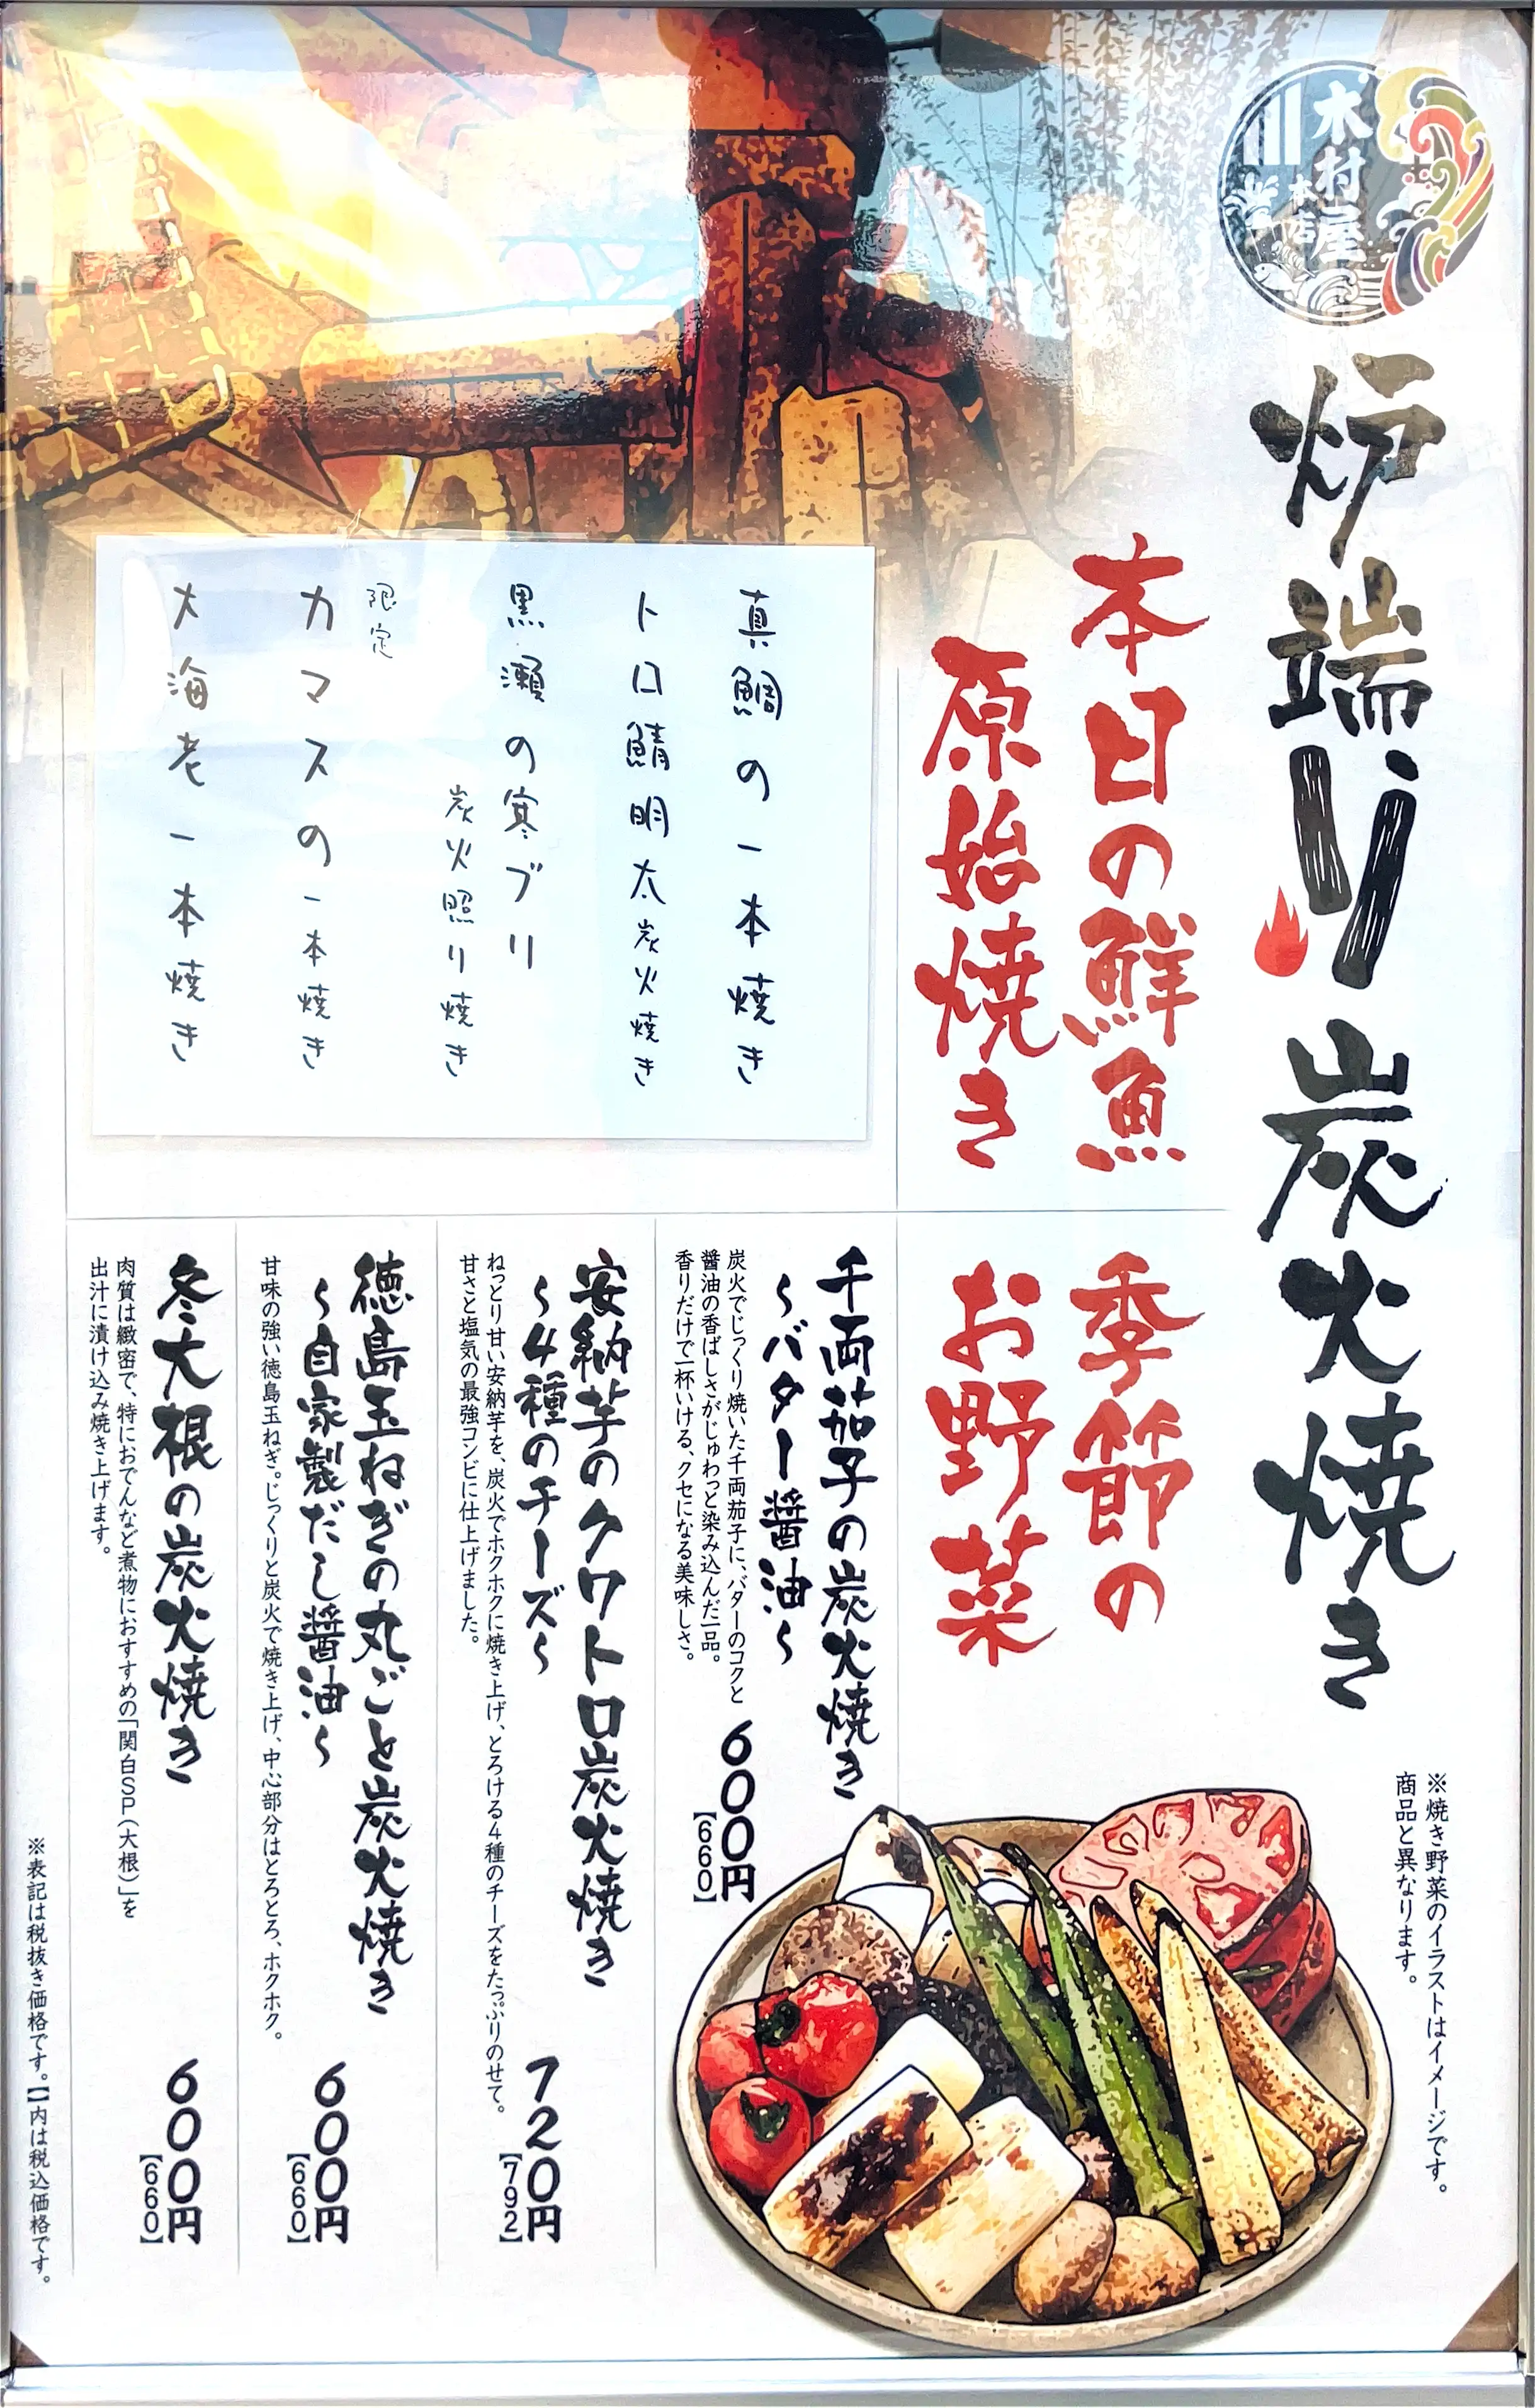 木村屋
本店
炉端
炭火焼き
本日の鮮魚
原始焼き
真鯛の一本焼き
トロ鯖明太炭火焼き
黒瀬の寒ブリ
炭火照り焼き
限定
カマスの一本焼き
大海老一本焼き
季節の
お野菜
千両茄子の炭火焼き
～バター醤油～
炭火でじっくり焼いた千両茄子に、バターのコクと
醤油の香ばしさがじゅわっと染み込んだ一品。
香りだけで一杯いける、クセになる美味しさ。
600円
【660】
安納芋のクワトロ炭火焼き
～4種のチーズ～
ねっとり甘い安納芋を、炭火でホクホクに焼き上げ、とろける4種のチーズをたっぷりのせて。
甘さと塩気の最強コンビに仕上げました。
720円
【792】
徳島玉ねぎの丸ごと炭火焼き
～自家製だし醤油～
甘味の強い徳島玉ねぎ。じっくりと炭火で焼き上げ、中心部分はとろとろ、ホクホク。
600円
【660】
冬大根の炭火焼き
肉質は緻密で、特におでんなど煮物におすすめの「関白SP(大根)」を
出汁に漬け込み焼き上げます。
600円
【660】
※焼き野菜のイラストはイメージです。
商品と異なります。
※表記は税抜き価格です。【】内は税込価格です。